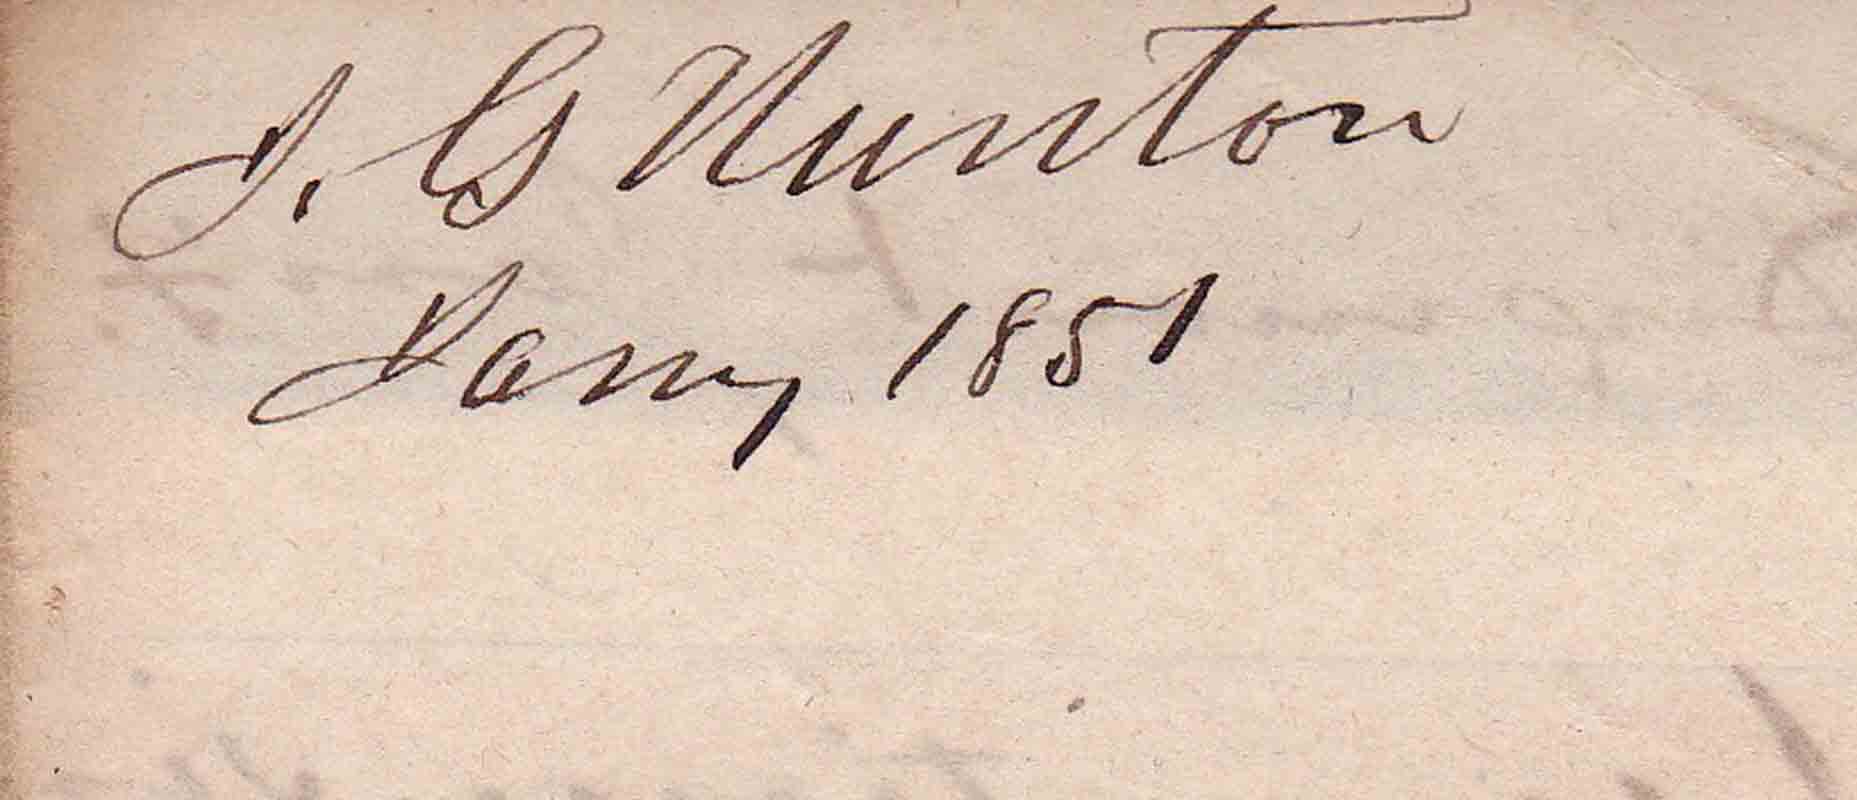 J. G Nunton
Jany 1851